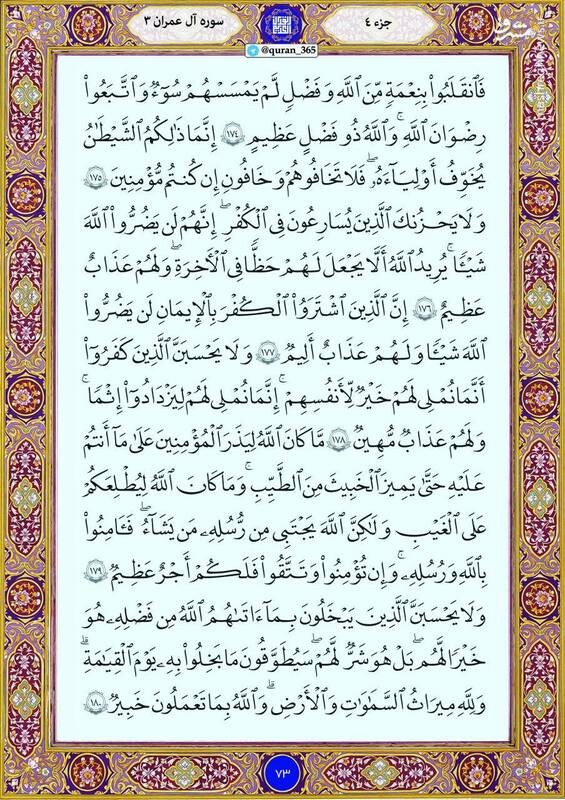 سوره آل عمران ۳
جزء ٤
@quran_365
مشرق
فَٱنقَلَبُوا۟ بِنِعْمَةٍ مِّنَ ٱللَّهِ وَفَضْلٍ لَّمْ يَمْسَسْهُمْ سُوٓءٌ وَٱتَّبَعُوا۟
رِضْوَٰنَ ٱللَّهِ ۗ وَٱللَّهُ ذُو فَضْلٍ عَظِيمٍ ١٧٤ إِنَّمَا ذَٰلِكُمُ ٱلشَّيْطَٰنُ
يُخَوِّفُ أَوْلِيَآءَهُۥ فَلَا تَخَافُوهُمْ وَخَافُونِ إِن كُنتُم مُّؤْمِنِينَ ١٧٥
وَلَا يَحْزُنكَ ٱلَّذِينَ يُسَٰرِعُونَ فِى ٱلْكُفْرِ ۚ إِنَّهُمْ لَن يَضُرُّوا۟ ٱللَّهَ
شَيْـًٔا ۗ يُرِيدُ ٱللَّهُ أَلَّا يَجْعَلَ لَهُمْ حَظًّا فِى ٱلْءَاخِرَةِ ۖ وَلَهُمْ عَذَابٌ
عَظِيمٌ ١٧٦ إِنَّ ٱلَّذِينَ ٱشْتَرَوُا۟ ٱلْكُفْرَ بِٱلْإِيمَٰنِ لَن يَضُرُّوا۟
ٱللَّهَ شَيْـًٔا وَلَهُمْ عَذَابٌ أَلِيمٌ ١٧٧ وَلَا يَحْسَبَنَّ ٱلَّذِينَ كَفَرُوٓا۟
أَنَّمَا نُمْلِى لَهُمْ خَيْرٌ لِّأَنفُسِهِمْ ۚ إِنَّمَا نُمْلِى لَهُمْ لِيَزْدَادُوٓا۟ إِثْمًا ۚ
وَلَهُمْ عَذَابٌ مُّهِينٌ ١٧٨ مَّا كَانَ ٱللَّهُ لِيَذَرَ ٱلْمُؤْمِنِينَ عَلَىٰ مَآ أَنتُمْ
عَلَيْهِ حَتَّىٰ يَمِيزَ ٱلْخَبِيثَ مِنَ ٱلطَّيِّبِ ۗ وَمَا كَانَ ٱللَّهُ لِيُطْلِعَكُمْ
عَلَى ٱلْغَيْبِ وَلَٰكِنَّ ٱللَّهَ يَجْتَبِى مِن رُّسُلِهِۦ مَن يَشَآءُ ۖ فَـَٔامِنُوا۟
بِٱللَّهِ وَرُسُلِهِۦ ۚ وَإِن تُؤْمِنُوا۟ وَتَتَّقُوا۟ فَلَكُمْ أَجْرٌ عَظِيمٌ ١٧٩
وَلَا يَحْسَبَنَّ ٱلَّذِينَ يَبْخَلُونَ بِمَآ ءَاتَىٰهُمُ ٱللَّهُ مِن فَضْلِهِۦ هُوَ
خَيْرًا لَّهُم ۖ بَلْ هُوَ شَرٌّ لَّهُمْ ۖ سَيُطَوَّقُونَ مَا بَخِلُوا۟ بِهِۦ يَوْمَ ٱلْقِيَٰمَةِ ۗ
وَلِلَّهِ مِيرَٰثُ ٱلسَّمَٰوَٰتِ وَٱلْأَرْضِ ۗ وَٱللَّهُ بِمَا تَعْمَلُونَ خَبِيرٌ ١٨٠
٧٣